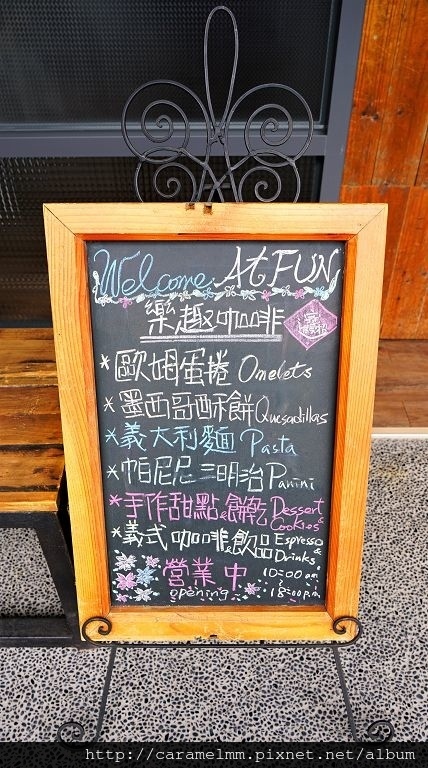 Welcome At FUN
樂趣咖啡
*歐姆蛋捲 Omelets
*墨西哥酥餅 Quesadillas
*義大利麵 Pasta
*帕尼尼三明治 Panini
*手作甜點&餅乾 Dessert & Cookies
*義式咖啡&飲品 Espresso & Drinks
營業中 10:00 am
opening 18:00 p.m
http://caramelmm.pixnet.net/album